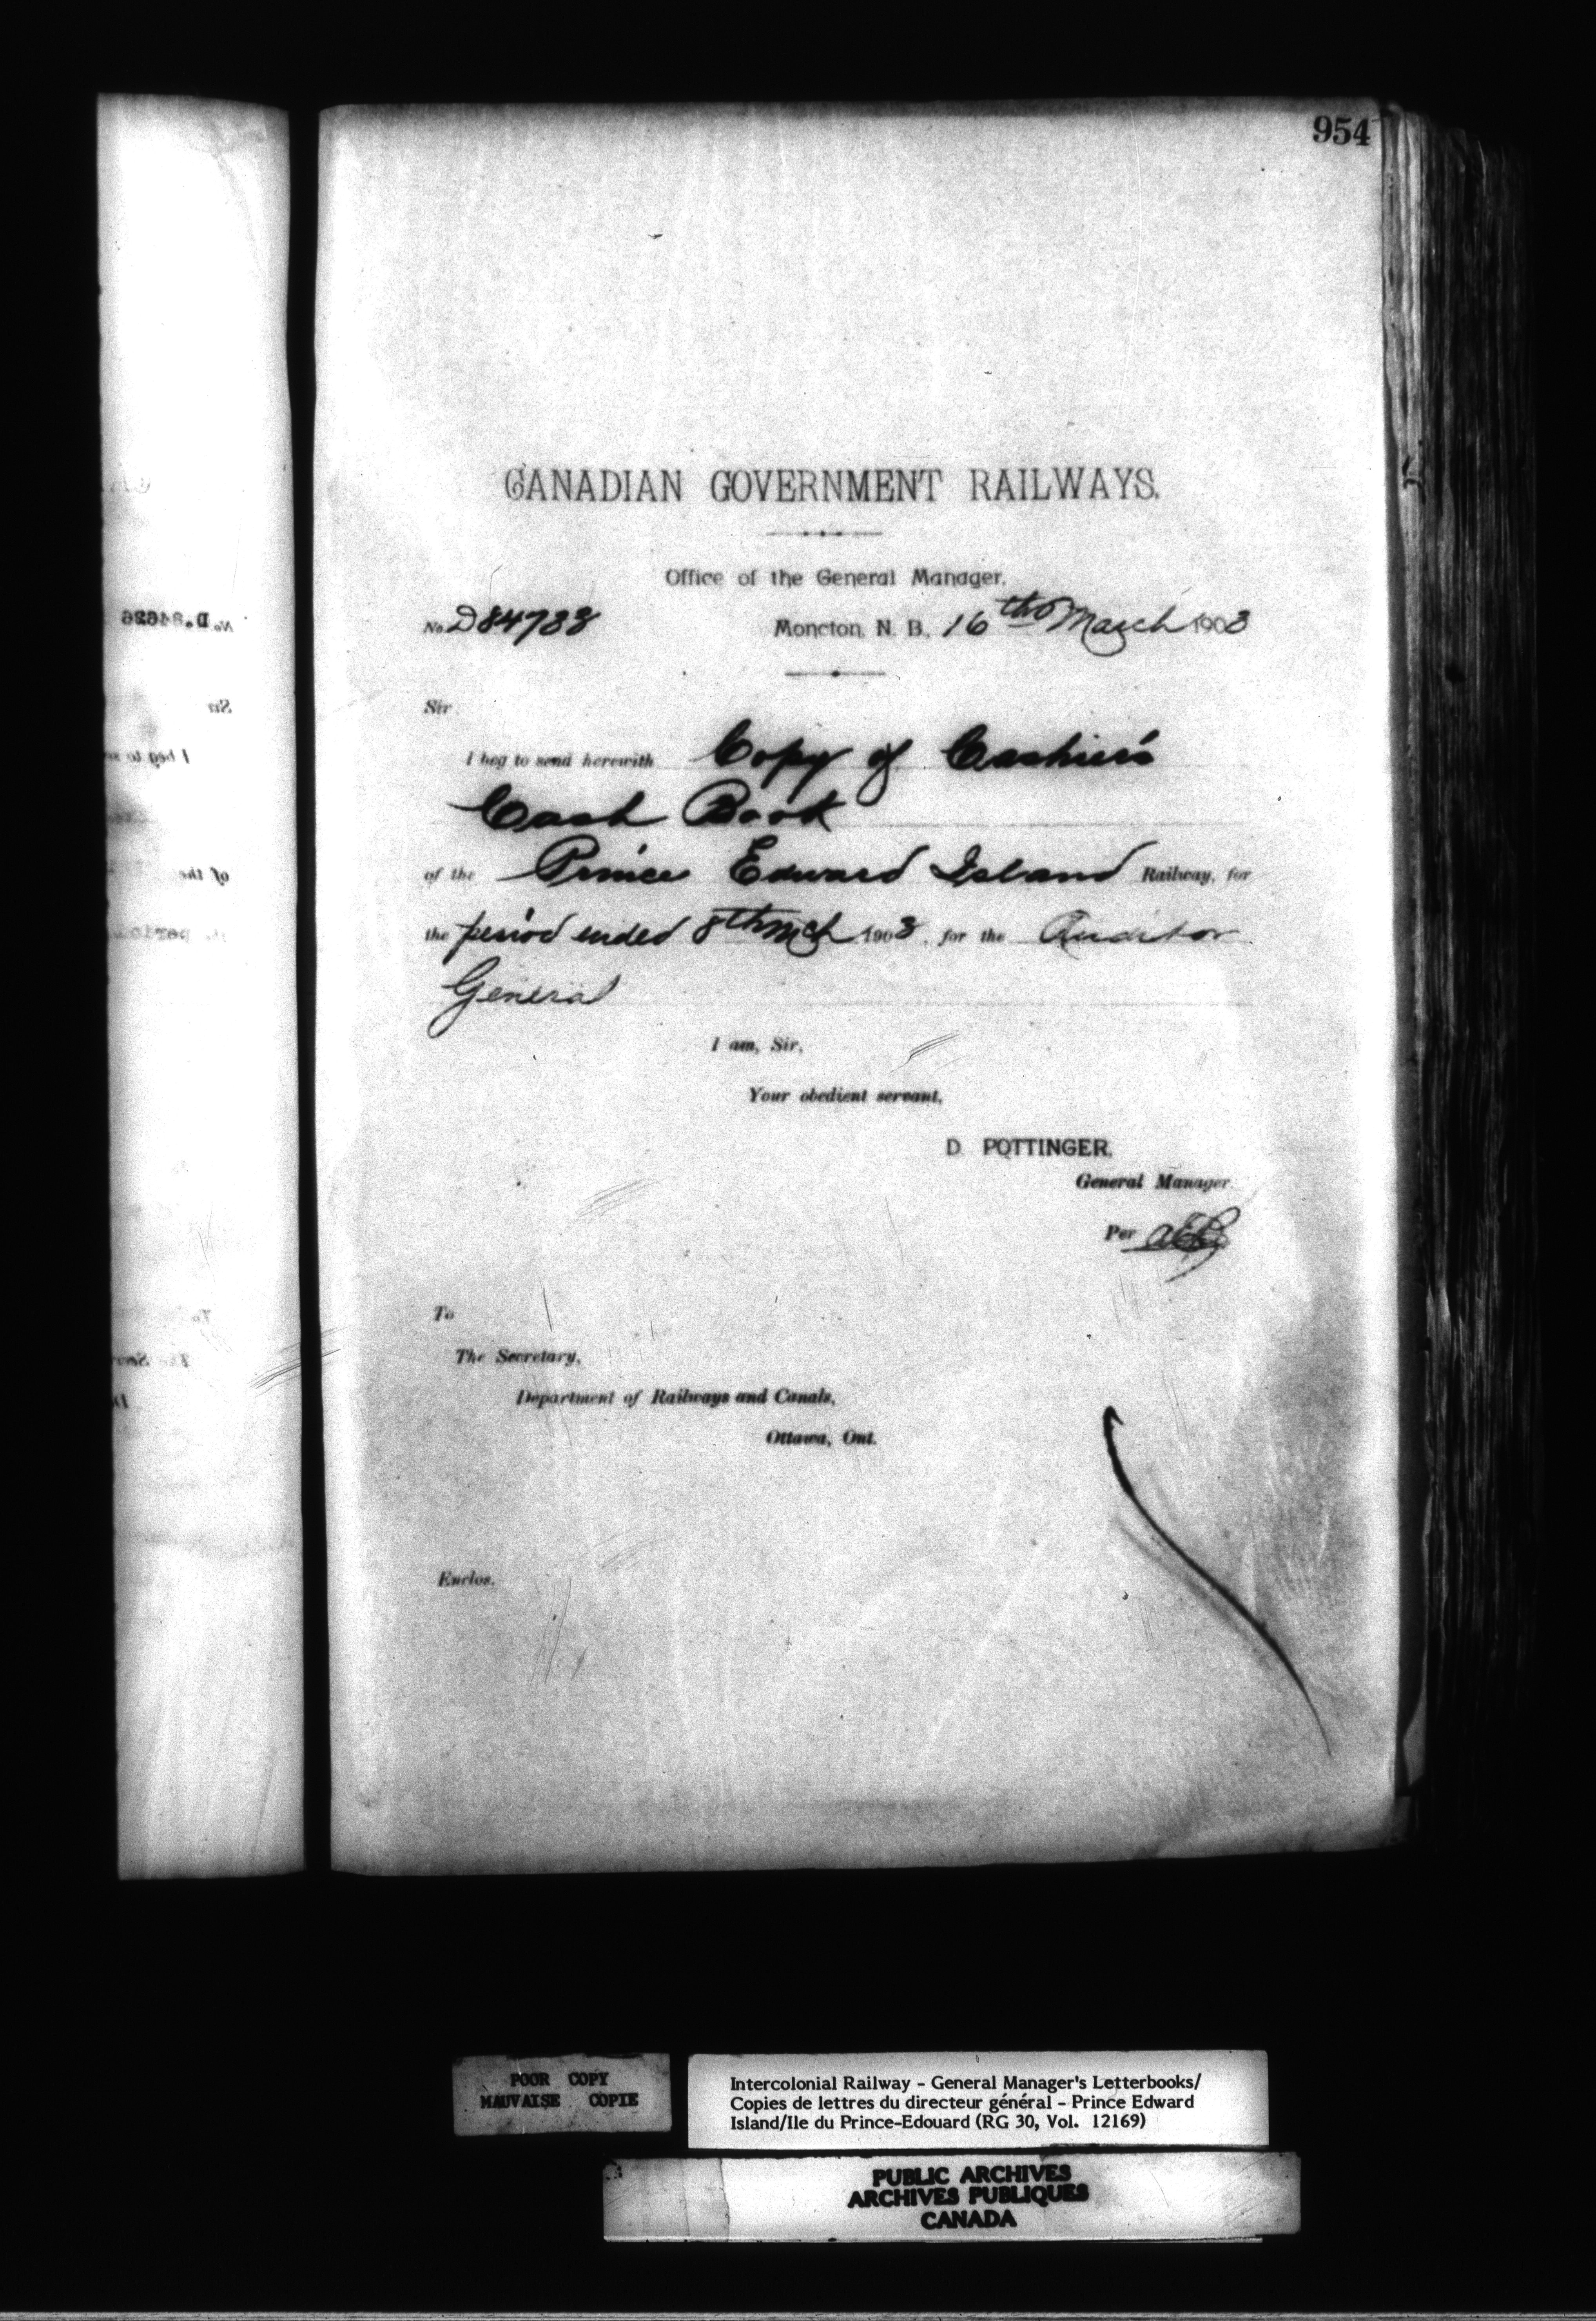 954
CANADIAN GOVERNMENT RAILWAYS.
Office of the General Manager.
No. D84738 Moncton, N. B., 16th March 1903
Sir
I beg to send herewith Copy of Cashier's
Cash Book
of the Prince Edward Island Railway, for
the period ended 8th Mch 1903, for the Auditor
General
I am, Sir,
Your obedient servant,
D. POTTINGER,
General Manager.
Per
To
The Secretary,
Department of Railways and Canals,
Ottawa, Ont.
Enclos.
No. D.84626
Sir
I beg to se
of the
POOR COPY
MAUVAISE COPIE
Intercolonial Railway - General Manager's Letterbooks/
Copies de lettres du directeur général - Prince Edward
Island/Ile du Prince-Edouard (RG 30, Vol. 12169)
PUBLIC ARCHIVES
ARCHIVES PUBLIQUES
CANADA